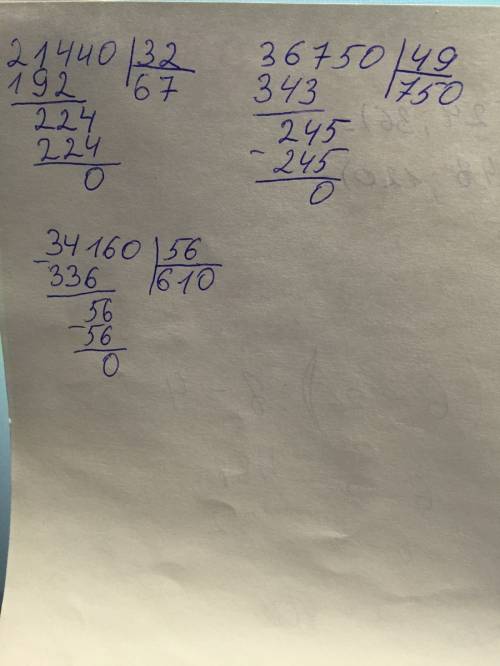 21440 | 32
192 67
224
224
0
36750 | 49
343 750
245
- 245
0
- 34160 | 56
336 610
56
- 56
0